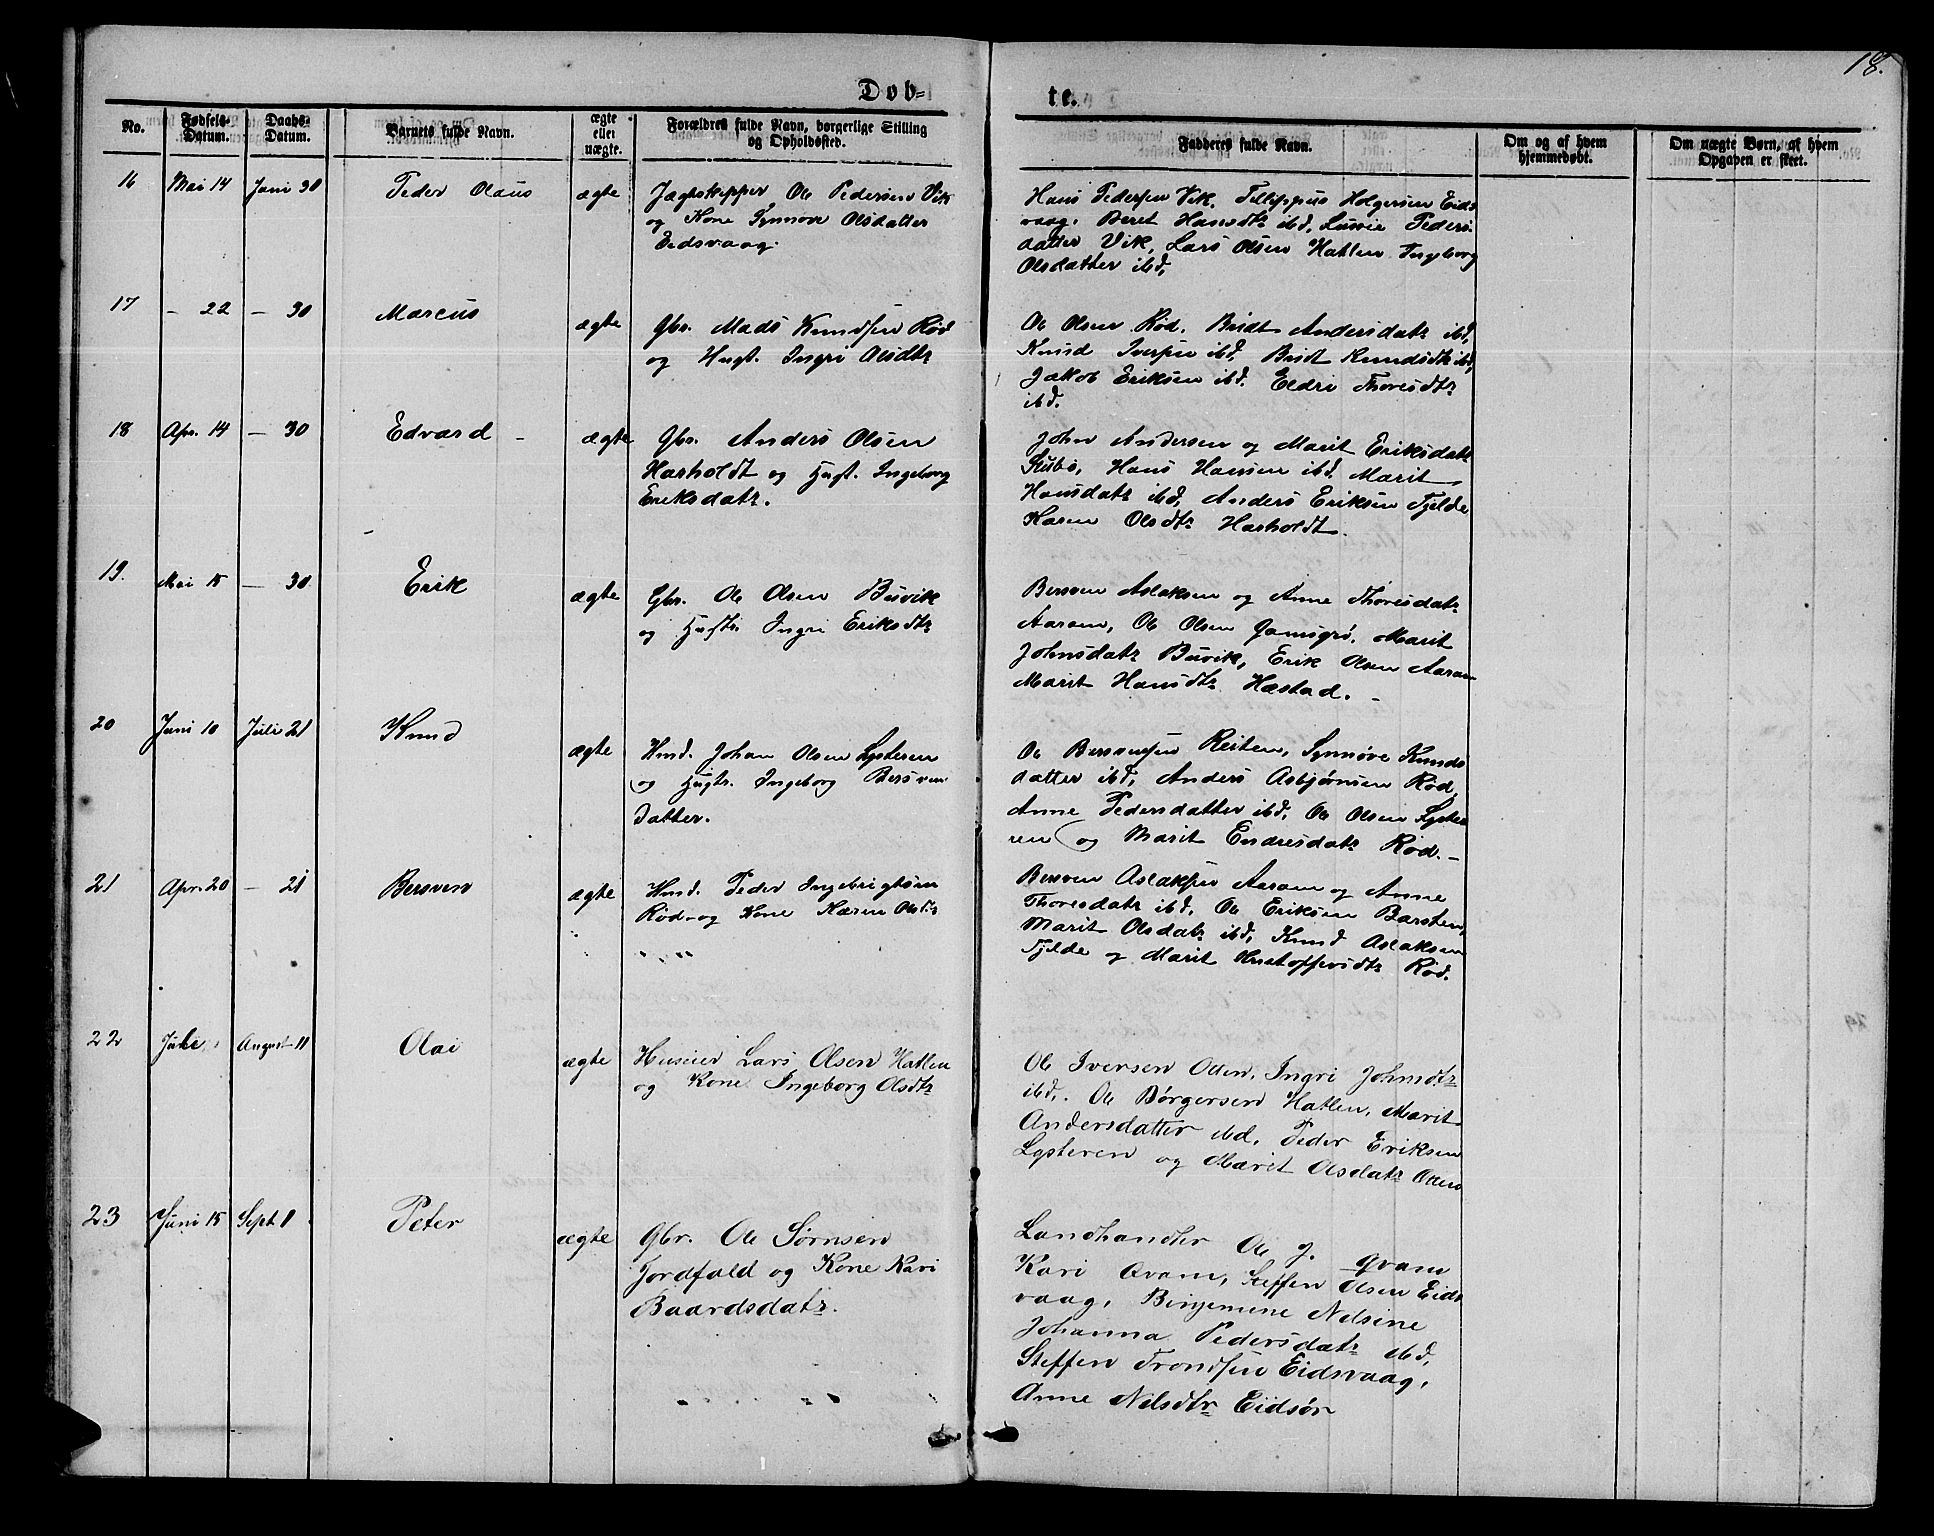 18.
Døb- te.
No. Fødsels-Datum. Daabs-Datum. Barnets fulde Navn. ægte eller uægte. Forældres fulde Navn, borgerlige Stilling og Opholdssted. Fadderes fulde Navn. Om og af hvem hjemmedøbt. Om uægte Børn, af hvem Opgaven er skeet.
16 Mai 14 Juni 30 Peder Olaus ægte Jægtskipper Ole Pedersen Vik
og Kone Synnøve Olsdatter
Eidsvaag.
Hans Pedersen Vik, Fillippus Holgersen Eids
vaag. Beret Hansdtr ibd, Lussie Peders
datter Vik, Lars Olsen Hatlen Ingeborg
Olsdatter ibd,
17 — 22 — 30 Marcus ægte Gbr. Mads Knudsen Rød
og Hust. Ingri Olsdtr
Ole Olsen Rød. Bridt Andersdatr ibd,
Knud Iversen ibd, Bridt Knudsdtr ibd,
Jakob Eriksen ibd. Eldri Thoresdtr
ibd.
18 Apr. 14 — 30 Edvard ægte Gbr. Anders Olsen
Harholdt og Hust. Ingeborg
Eriksdatr.
John Andersen og Marit Eriksdatr
Stubø, Hans Hansen ibd. Marit
Hansdatr ibd, Anders Eriksen Tjelde
Karen Olsdtr Harholdt.
19. Mai 15 — 30. Erik ægte Gbr. Ole Olsen Buvik
og Hustr. Ingri Eriksdtr
Bersven Aslaksen og Anne Thoresdatr
Aaram, Ole Olsen Gamsgrø. Marit
Johnsdatr Buvik, Erik Olsen Aaram
Marit Hansdtr Hæstad. —
20 Juni 10 Juli 21 Knud ægte Hmd. Johan Olsen Lysteren
og Hustr. Ingeborg Bersven
datter.
Ole Bersvensen Reiten, Synnøve Knuds
datter ibd, Anders Asbjørnsen Rød,
Anne Pedersdatter ibd, Ole Olsen Lyste
ren og Marit Endresdatr Rød. —
21 Apr. 20 — 21 Bersven ægte Hmd. Peder Ingebrigtsen
Rød og Kone Karen Olsdtr
Bersven Aslaksen Aaram og Anne
Thoresdatr ibd, Ole Eriksen Barsten,
Marit Olsdatr ibd, Knud Aslaksen
Tjelde og Marit Kristoffersdtr Rød.
22 Juli August 11 Olai ægte Huseier Lars Olsen Hatlen
og Kone Ingeborg Olsdtr
Ole Iversen Otten, Ingri Johnsdtr
ibd,. Ole Børgersen Hatlen, Marit
Andersdatter ibd, Peder Eriksen
Lysteren og Marit Olsdatr Otten
23 Juni 15 Sept 8 Peter ægte Gbr. Ole Sørnsen
Tordfald og Kone Kari
Baardsdatr.
Landhandler Ole J. Qvam
Kari Qvam, Steffen Olsen Eids
vaag, Binjemine Nilsine
Johanna Pedersdatr ibd,
Steffen Trondsen Eidsvaag,
Anne Nilsdtr Eidsør